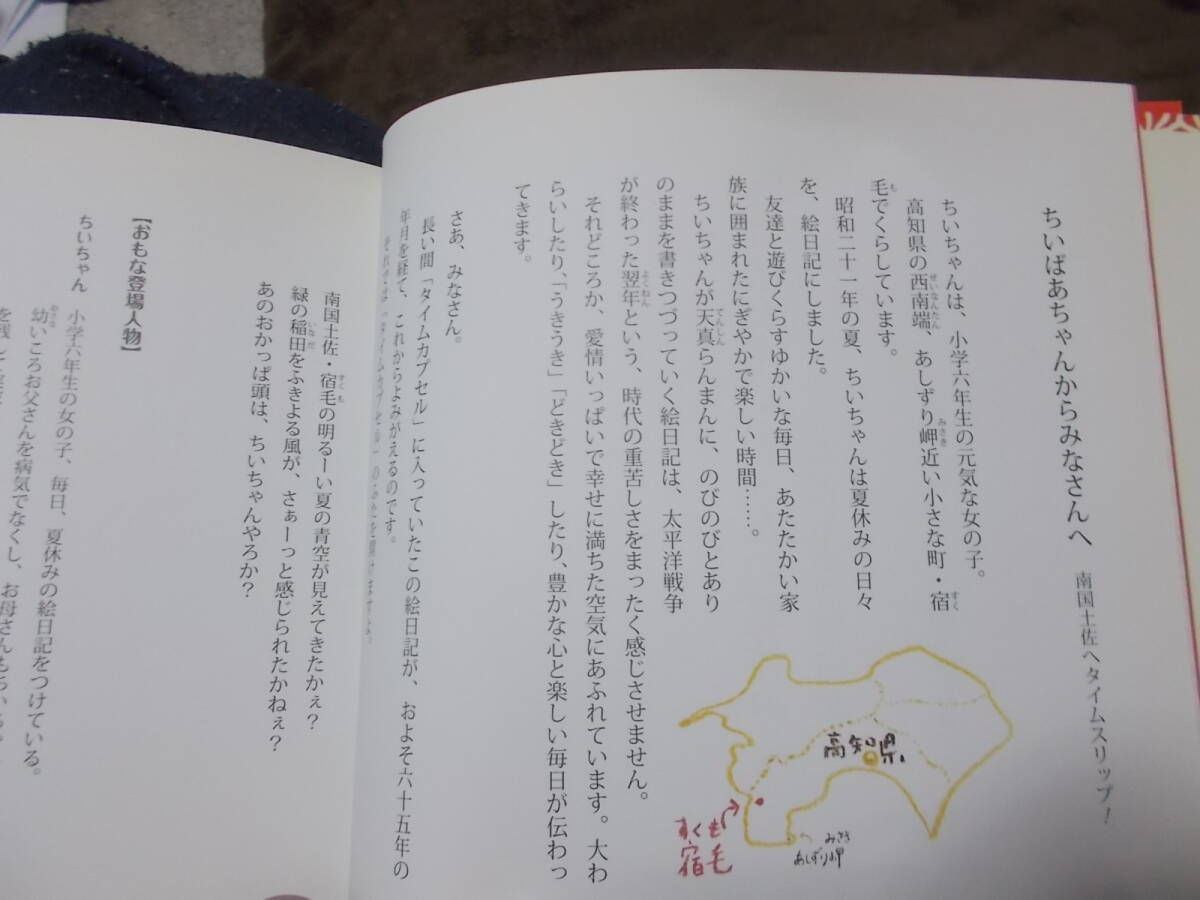 ちいばあちゃんからみなさんへ 南国土佐へタイムスリップ！
ちいちゃんは、小学六年生の元気な女の子。
高知県の西南端、あしずり岬近い小さな町・宿
毛でくらしています。
昭和二十一年の夏、ちいちゃんは夏休みの日々
を、絵日記にしました。
友達と遊びくらすゆかいな毎日、あたたかい家
族に囲まれたにぎやかで楽しい時間……。
ちいちゃんが天真らんまんに、のびのびとあり
のままを書きつづっていく絵日記は、太平洋戦争
が終わった翌年という、時代の重苦しさをまったく感じさせません。
それどころか、愛情いっぱいで幸せに満ちた空気にあふれています。大わ
らいしたり、「うきうき」「どきどき」したり、豊かな心と楽しい毎日が伝わっ
てきます。
さあ、みなさん。
長い間「タイムカプセル」に入っていたこの絵日記が、およそ六十五年の
年月を経て、これからよみがえるのです。
高知県
すくも
宿毛
みさき
あしずり岬
南国土佐・宿毛の明るーい夏の青空が見えてきたかぇ？
緑の稲田をふきよる風が、さぁーっと感じられたかねぇ？
あのおかっぱ頭は、ちいちゃんやろか？
【おもな登場人物】
ちいちゃん 小学六年生の女の子、毎日、夏休みの絵日記をつけている。
幼いころお父さんを病気でなくし、お母さんも